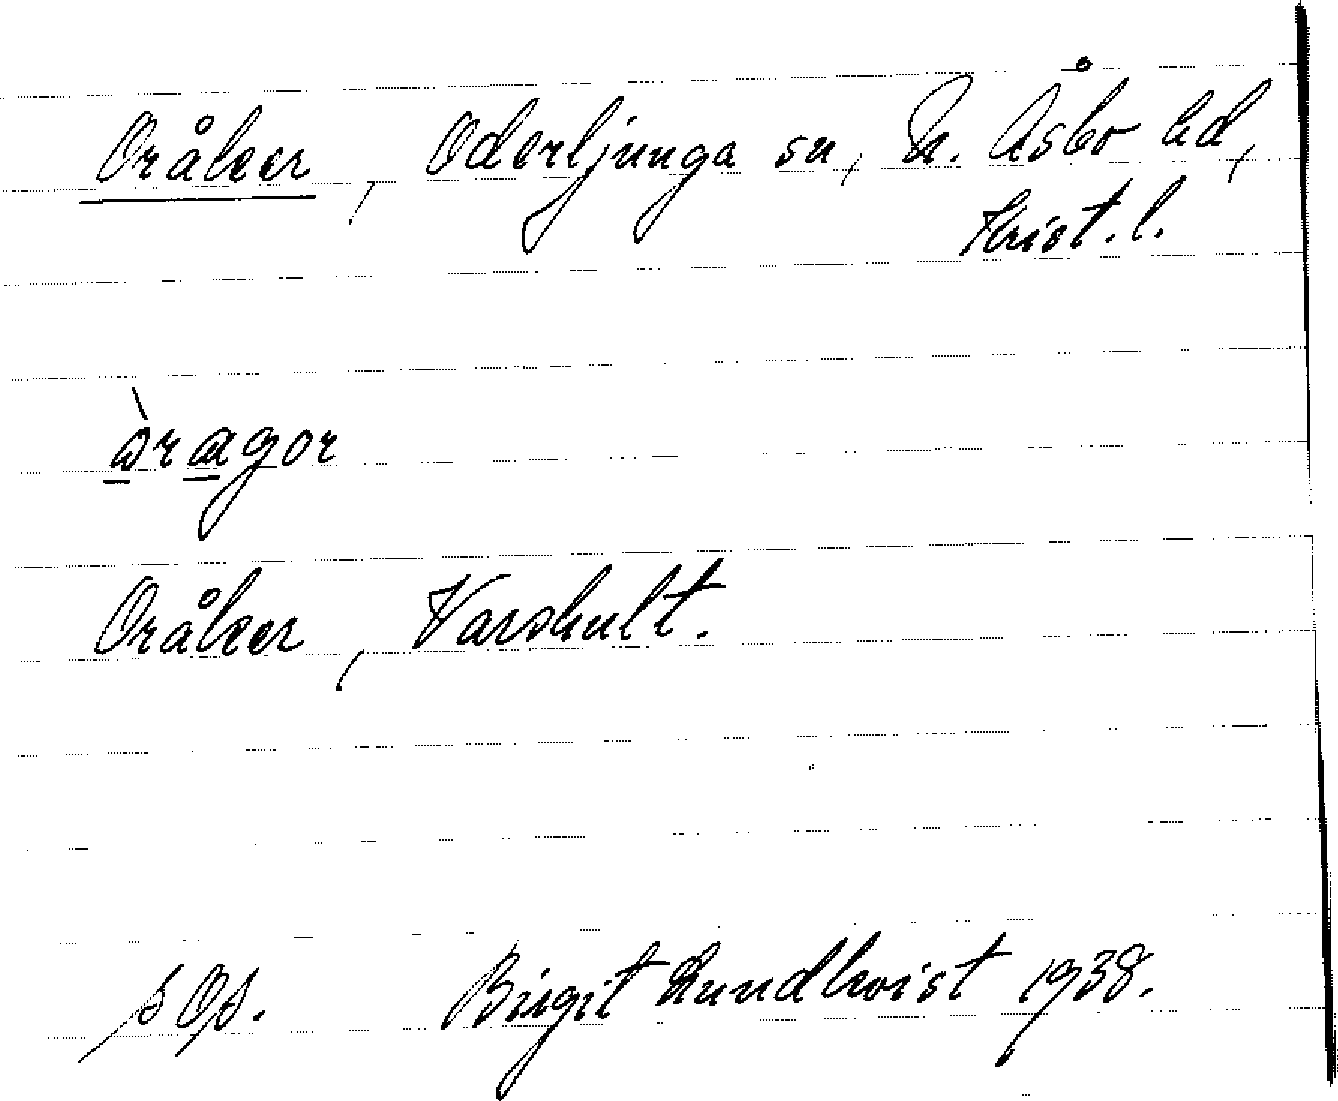 Oråker, Oderljunga sn, N. Åsbo hd,
Krist. l.
òrægor
Oråker, Varshult.
Birgit Lundkvist 1938.